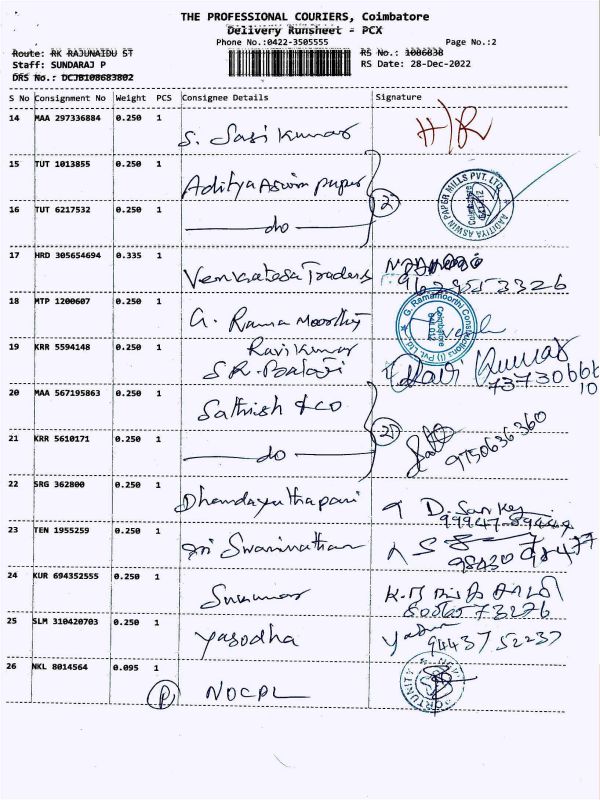 THE PROFESSIONAL COURIERS, Coimbatore
Delivery Runsheet - PCX
Phone No.:0422-3505555 Page No.:2
Route: RK RAJUNAIDU ST RS No.: 1006838
Staff: SUNDARAJ P RS Date: 28-Dec-2022
DRS No.: DCJB108683802
S No Consignment No Weight PCS Consignee Details Signature
14 MAA 297336884 0.250 1 S. Sasi Kumar H/R
15 TUT 1013855 0.250 1 Aditya Aswin paper
AADITIYA ASWIN PAPER MILLS PVT. LTD.
16 TUT 6217532 0.250 1 do 2
17 HRD 305654694 0.335 1 Venkatesa Traders
18 MTP 1200607 0.250 1 G. Rama Moorthy
G. Ramamoorthi Constructions (I) Pvt Ltd.
Coimbatore
19 KRR 5594148 0.250 1 Ravikumar
S.R. Ravi Kumar
20 MAA 567195863 0.250 1 Sathish & co
9750636360
21 KRR 5610171 0.250 1 do 2
22 SRG 362800 0.250 1 Dhandayuthapani D. Sankey
23 TEN 1955259 0.250 1 Sri Swaminathan
24 KUR 694352555 0.250 1
25 SLM 310420703 0.250 1 Yasodha
94437 52237
26 NKL 8014564 0.095 1 P NOCPL